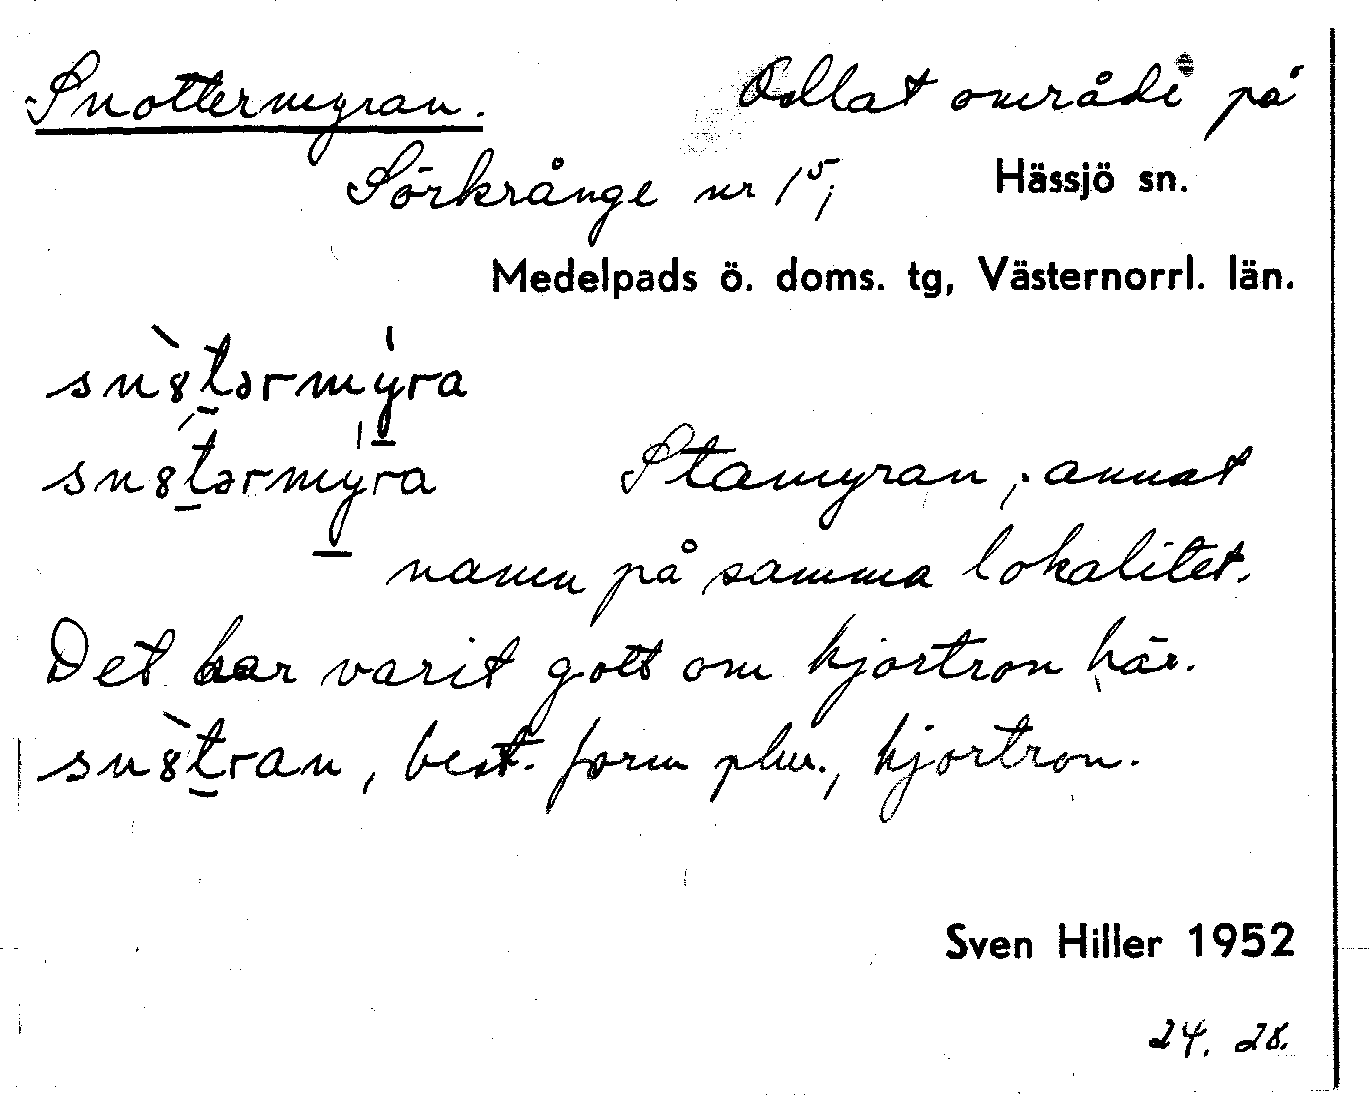 Snottermyran. Odlat område på
Sörkrånge nr 1⁵; Hässjö sn.
Medelpads ö. doms. tg, Västernorrl. län.
sn8̀tərmýra
sn8́tərmýra Stamyran, annat
namn på samma lokalitet.
Det har varit gott om hjortron här.
sn8̀tran, best. form plur., hjortron.
Sven Hiller 1952
24. 28.